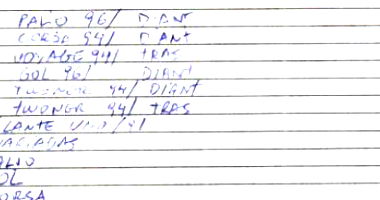 PALIO 96/ DIANT
CORSA 94/ DIANT
VOYAGE 94/ TRAS
GOL 96/ DIANT
TWONER 94/ DIANT
TWONER 94/ TRAS
LANTE UNO /91
ALIO
OL
ORSA